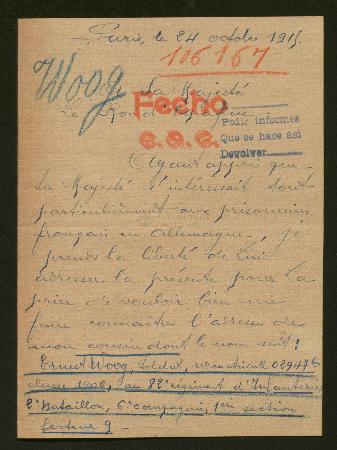 Paris, le 24 octobre 1915.
106167
Woog
A Sa Majesté
Le Roi d'Espagne
Fecho
e.a.c.
Pedir informes
Que se hace asi
Devolver
Ayant appris que
Sa Majesté s'intéressait tout
particulièrement aux prisonniers
français en Allemagne, je
prends la liberté de Lui
adresser la présente pour La
prier de vouloir bien me
faire connaître l'adresse de
mon cousin dont le nom suit:
Ernest Woog, Soldat, matricule 02947
classe 1906, au 82e régiment d'Infanterie
2e Bataillon, 6e compagnie, 1ère section
secteur 9 -